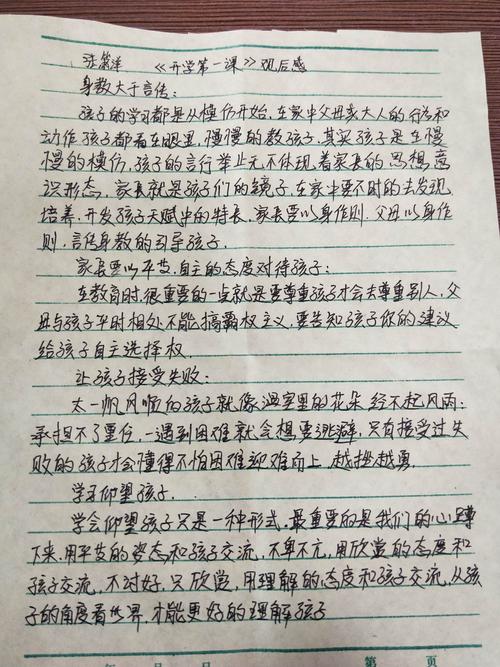 张箫洋 《开学第一课》观后感
身教大于言传：
孩子的学习都是从模仿开始，在家中父母亲大人的行为和
动作孩子都看在眼里，慢慢的教孩子，其实孩子是在慢
慢的模仿，孩子的言行举止无不体现着家长的思想意
识形态，家长就是孩子们的镜子，在家中要不时的去发现
培养，开发孩子天赋中的特长，家长要以身作则，父母以身作
则，言传身教的引导孩子。
家长要以平等、自主的态度对待孩子：
在教育时，很重要的一点就是要尊重孩子才会去尊重别人，父
母与孩子平时相处不能搞霸权主义，要告知孩子你的建议
给孩子自主选择权。
让孩子接受失败：
太一帆风顺的孩子就像温室里的花朵经不起风雨；
承担不了重任，一遇到困难就会想要逃避，只有接受过失
败的孩子才会懂得不怕困难迎难而上，越挫越勇
学习仰望孩子．
学会仰望孩子只是一种形式，最重要的是我们的心蹲
下来，用平等的姿态和孩子交流，不卑不亢，用欣赏的态度和
孩子交流，不讨好，只欣赏，用理解的态度和孩子交流，从孩
子的角度看世界，才能更好的理解孩子
年 月 日 第 页